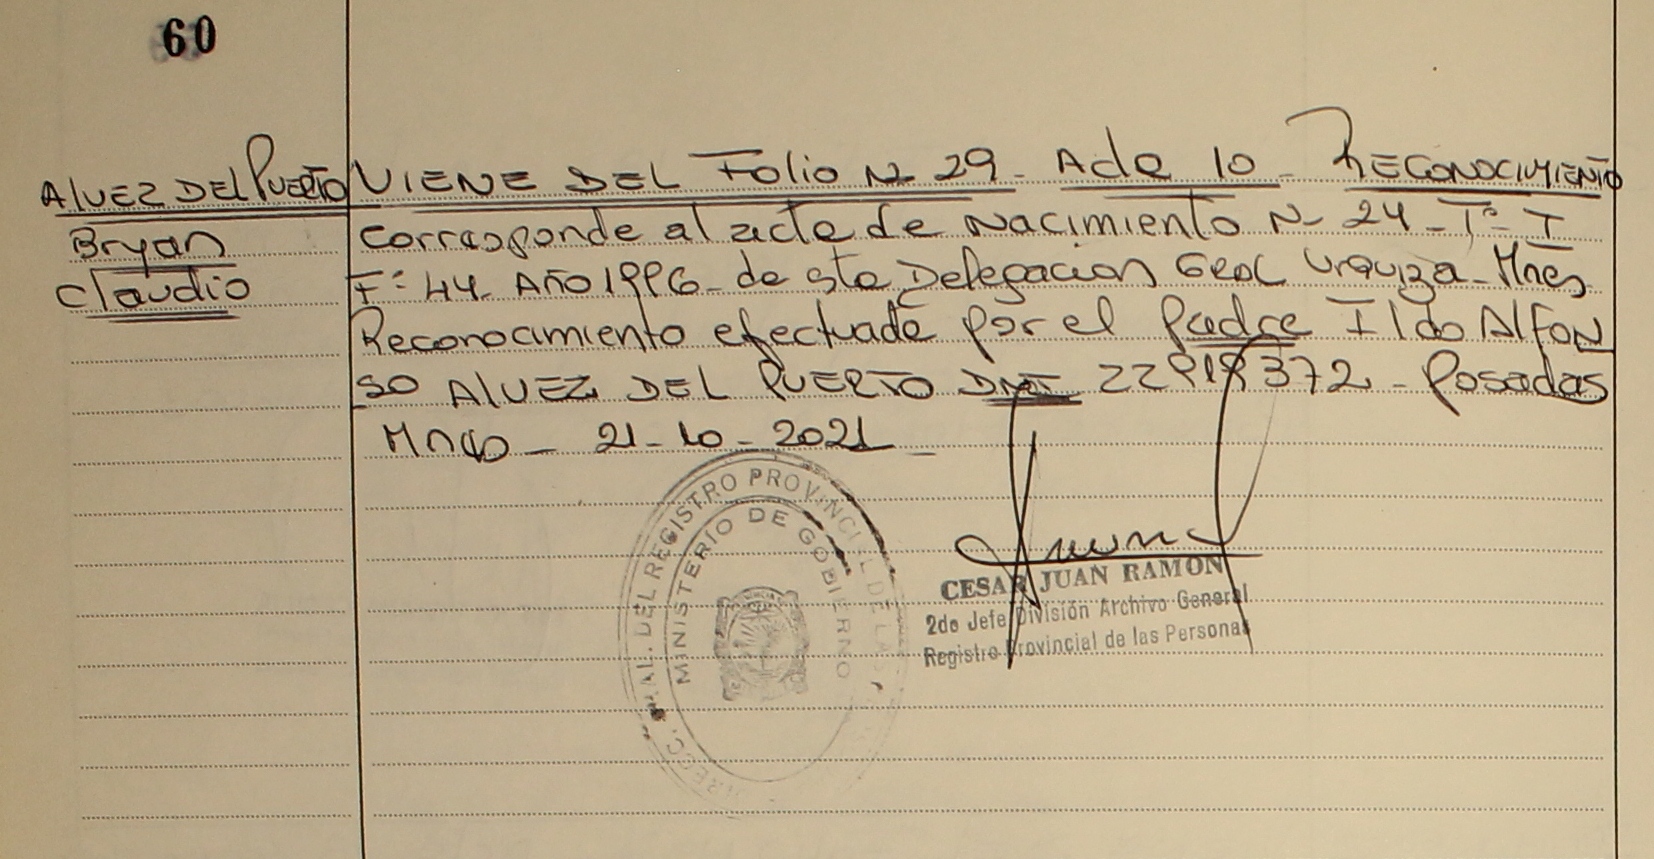 60
ALVEZ DEL PUERTO
Bryan
Claudio
VIENE DEL Folio N 29 - Acta 10 - RECONOCIMIENTO
Corresponde al acta de Nacimiento N- 24 - Tº - I
Fº 44 - AÑO 1996 - de sta Delegacion Gral Urquiza - Mnes
Reconocimiento efectuado por el padre Ildo Alfon
so ALVEZ DEL PUERTO DNI 22919372 - Posadas
21-10-2021
RECC. GRAL. DEL REGISTRO PROVINCIAL DE LAS
MINISTERIO DE GOBIERNO
CESAR JUAN RAMON
2do Jefe División Archivo General
Registro Provincial de las Personas